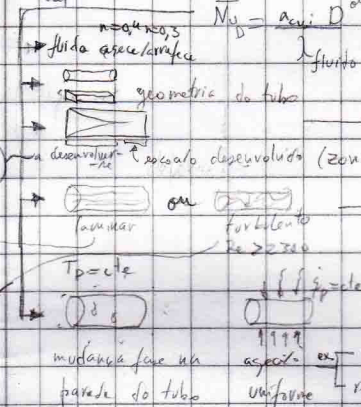 n=0,4 n=0,3
Nu_D = a_aqui D
fluido aquece/arrefece
λ fluido
geometria do tubo
a desenvolver-se
escoato desenvolvido (zon
laminar
ou
turbulento
Re > 2300
Tp=cte
q̇p=cte
mudança fase na
parede do tubo
aqecito
uniforme
ex